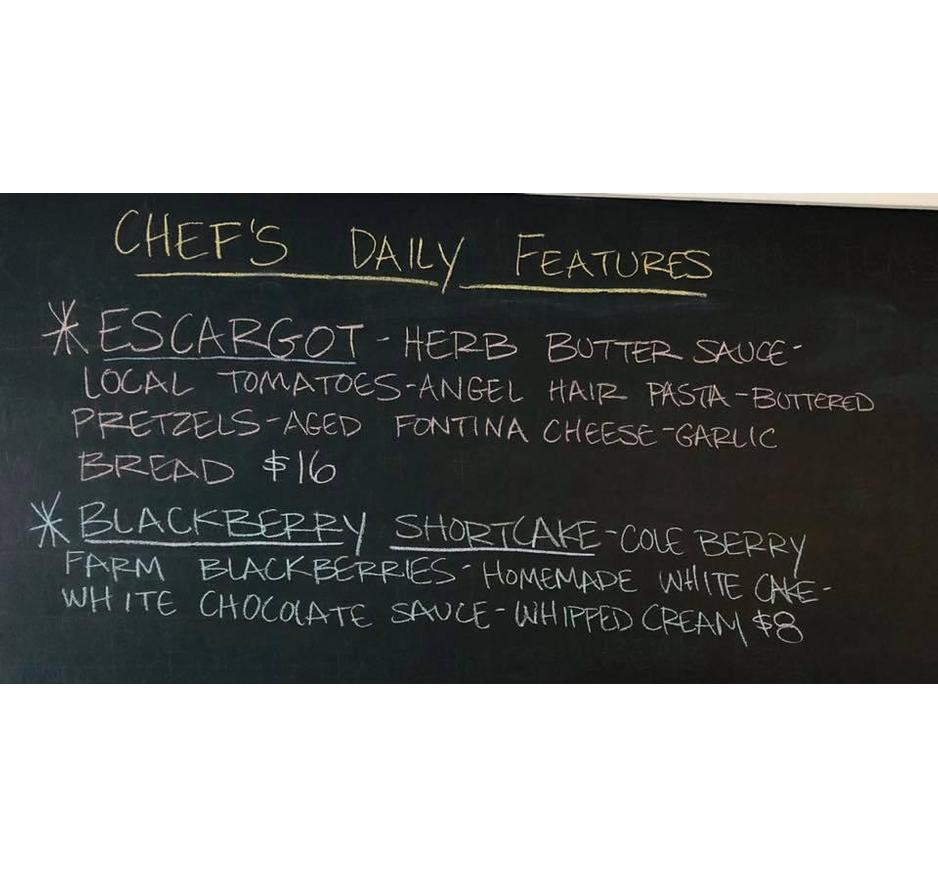 CHEF'S DAILY FEATURES
* ESCARGOT - HERB BUTTER SAUCE -
LOCAL TOMATOES - ANGEL HAIR PASTA - BUTTERED
PRETZELS - AGED FONTINA CHEESE - GARLIC
BREAD $16
* BLACKBERRY SHORTCAKE - COLE BERRY
FARM BLACKBERRIES - HOMEMADE WHITE CAKE -
WHITE CHOCOLATE SAUCE - WHIPPED CREAM $8